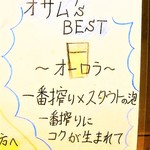 オサム's
BEST
〜オーロラ〜
一番搾り×スタウトの泡
一番搾りに
コクが生まれて
方へ